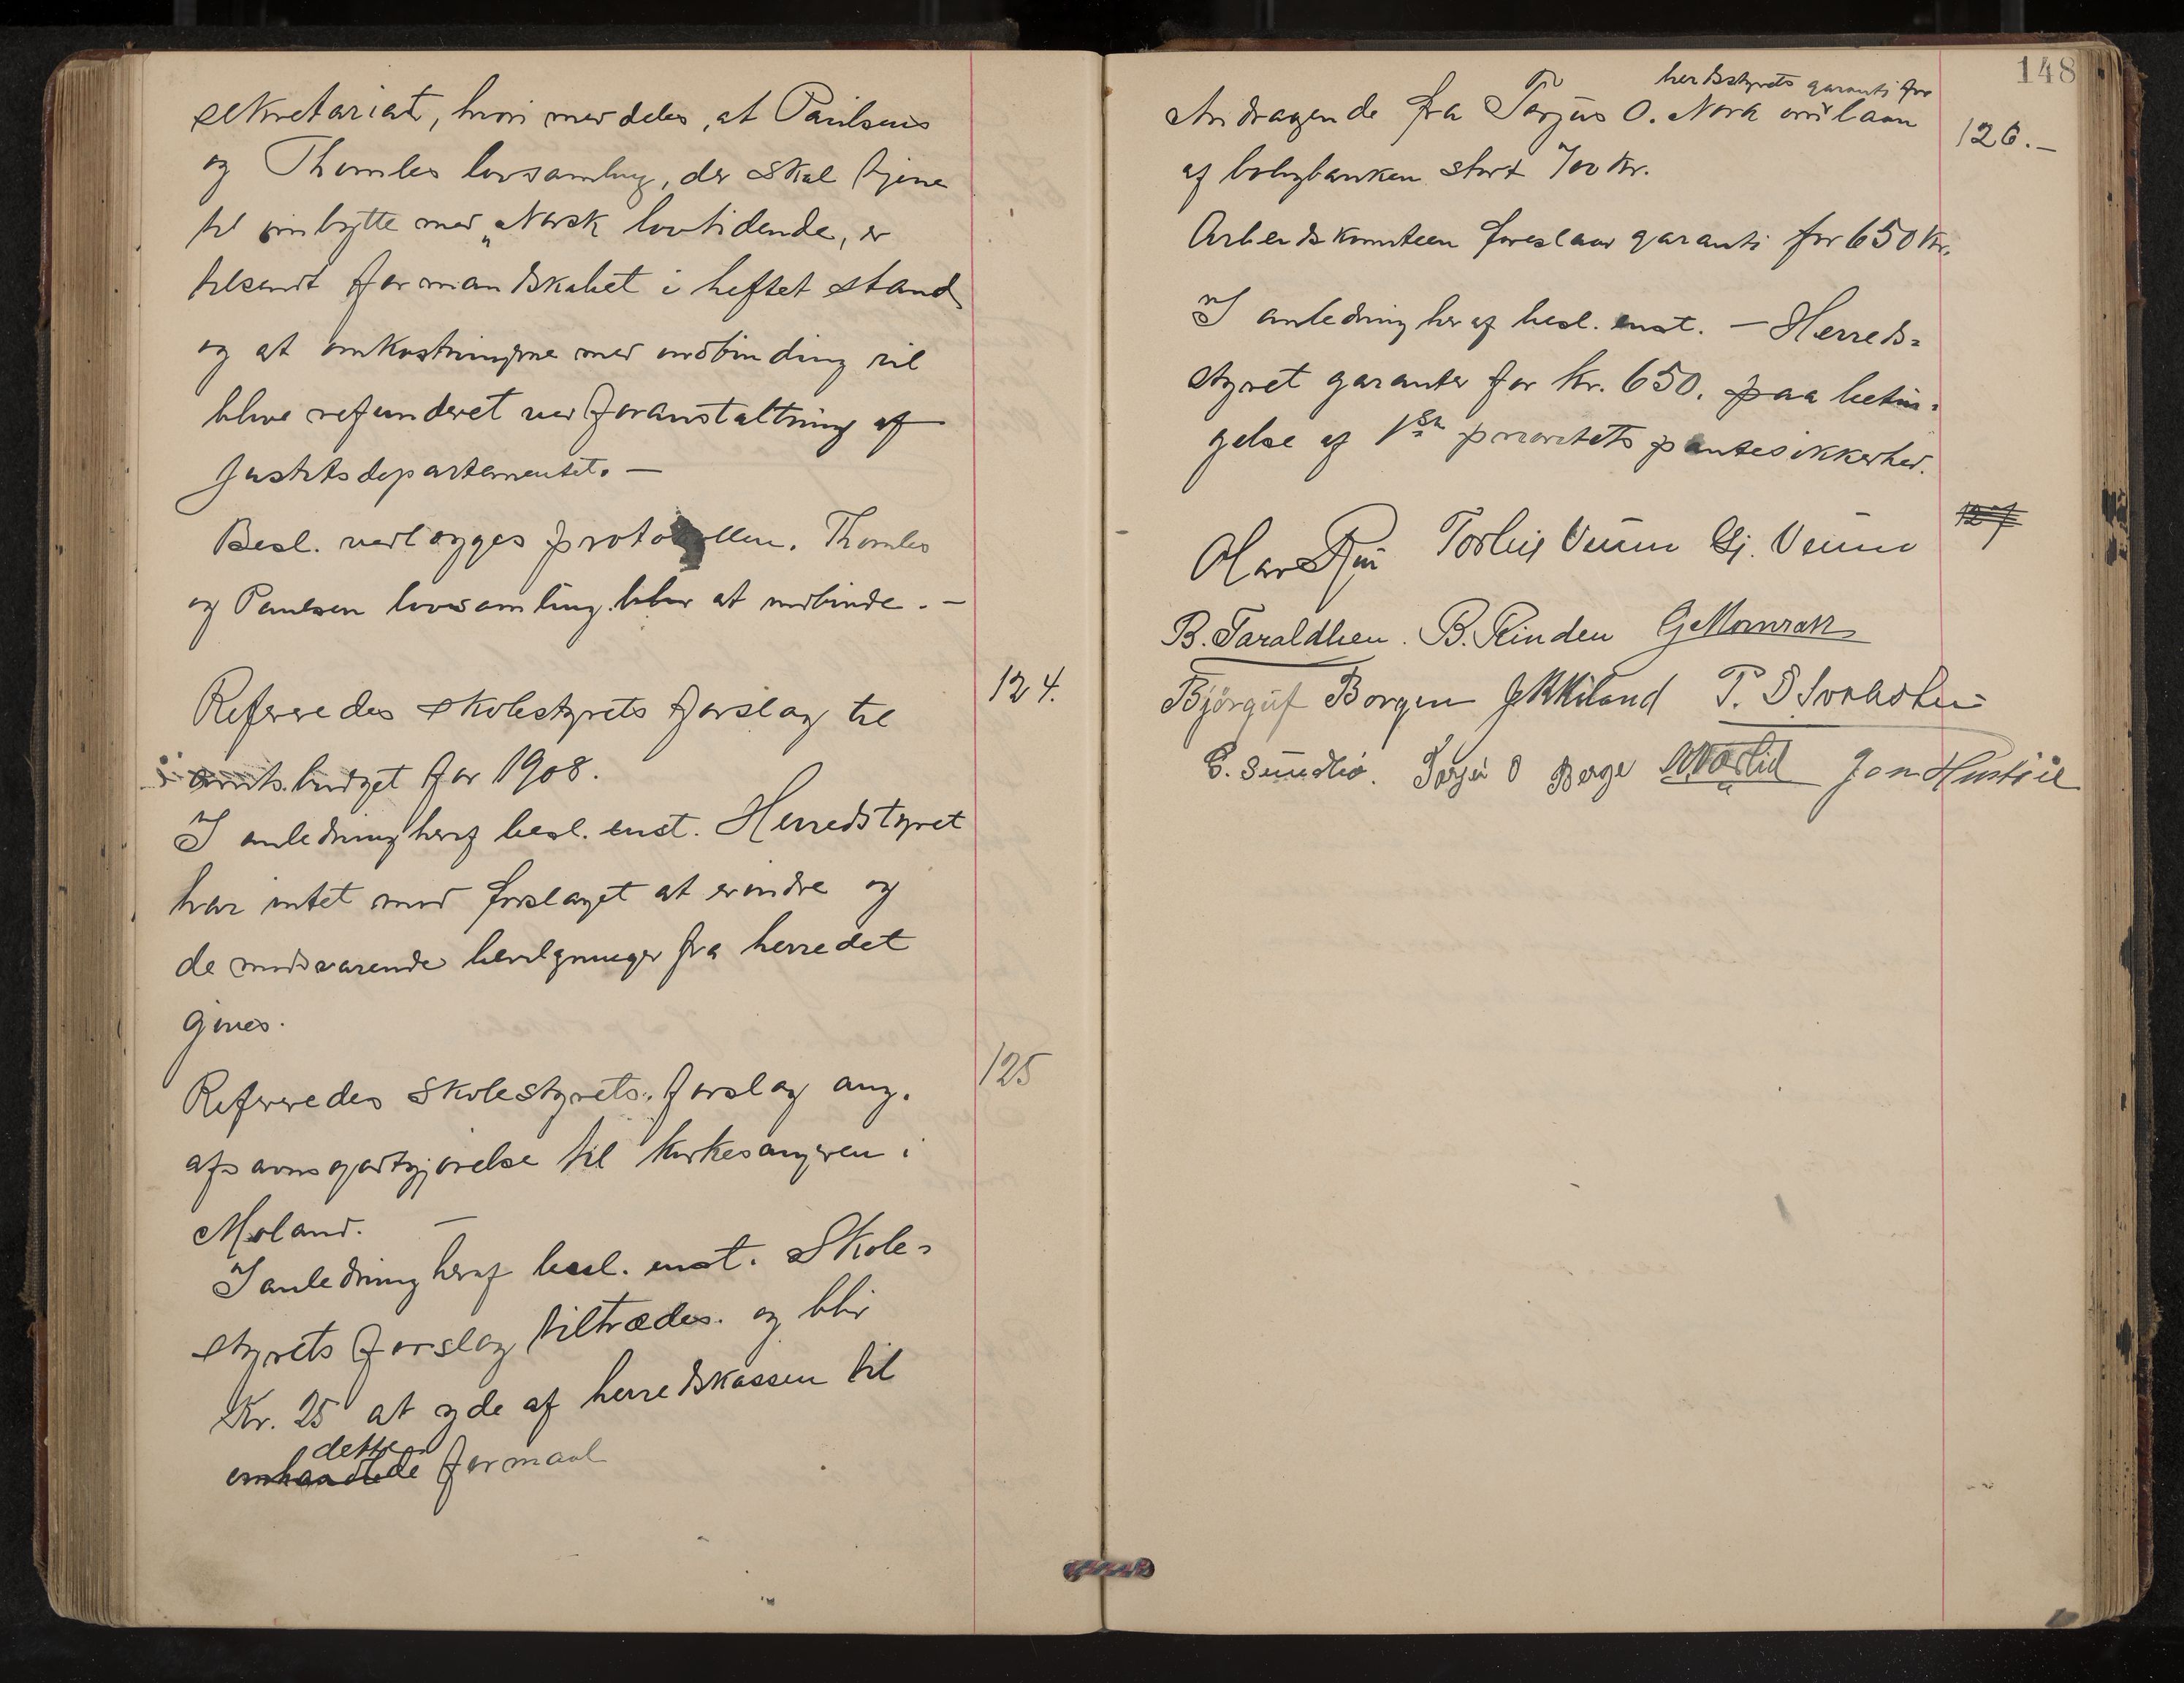 sekretariat, hvori meddeles, at Paulsens
og Thomles lovsamling, der skal tjene
til ombytte med „Norsk lovtidende, er
tilsendt formandskabet i heftet stand
og at omkostningerne med indbinding vil
blive refunderet ved foranstaltning af
Justitsdepartementet. —
Besl. vedlægges protokollen. Thomles
og Paulsen lovsamling blir at indbinde. —
124.
Refereredes skolestyrets forslag til
budget for 1908.
I anledning heraf besl. enst. Herredstyret
har intet mod forslaget at erindre og
de modsvarende bevilgninger fra herredet
gives.
125
Refereredes skolestyrets forslag ang.
afsavnsgodtgjørelse til kirkesangeren i
Moland. —
I anledning heraf besl. enst. Skole-
styrets forslag tiltrædes og blir
Kr. 25 at yde af herredskassen til
dette
omhandlede formaal
148
herdsstyrets garanti for
Andragende fra Torjus O. Nora om laan
126.—
af boligbanken stort 700 Kr.
Arbeidskomiteen foreslaar garanti for 650 Kr.
I anledning heraf besl. enst. — Herreds-
styret garanter for Kr. 650. paa betin-
gelse af 1ste prioritets pantesikkerhed.
127
Olav Torleif Veum Gj. Veum
B. Taraldlien. B. Rinden G. Momrak
Björgúf Borgen Kiland T. D.
G. Sundbø. Torjus O Berge Jon